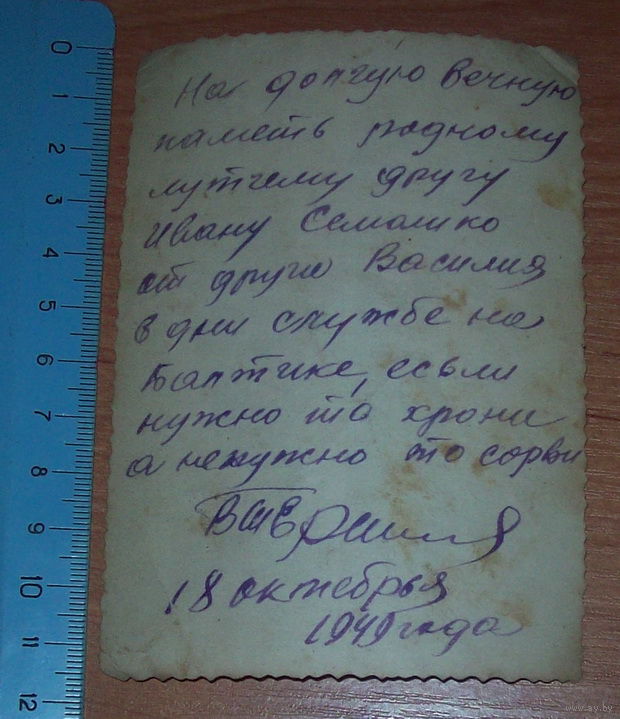 На долгую вечную
паметь родному
лутчему другу
Ивану Семашко
от друга Василия
в дни службе на
Балтике, есьли
нужно то храни
а ненужно то сорви
18 октебрья
1949 года
0
1
2
3
4
5
6
7
8
9
10
11
12
www.ay.by